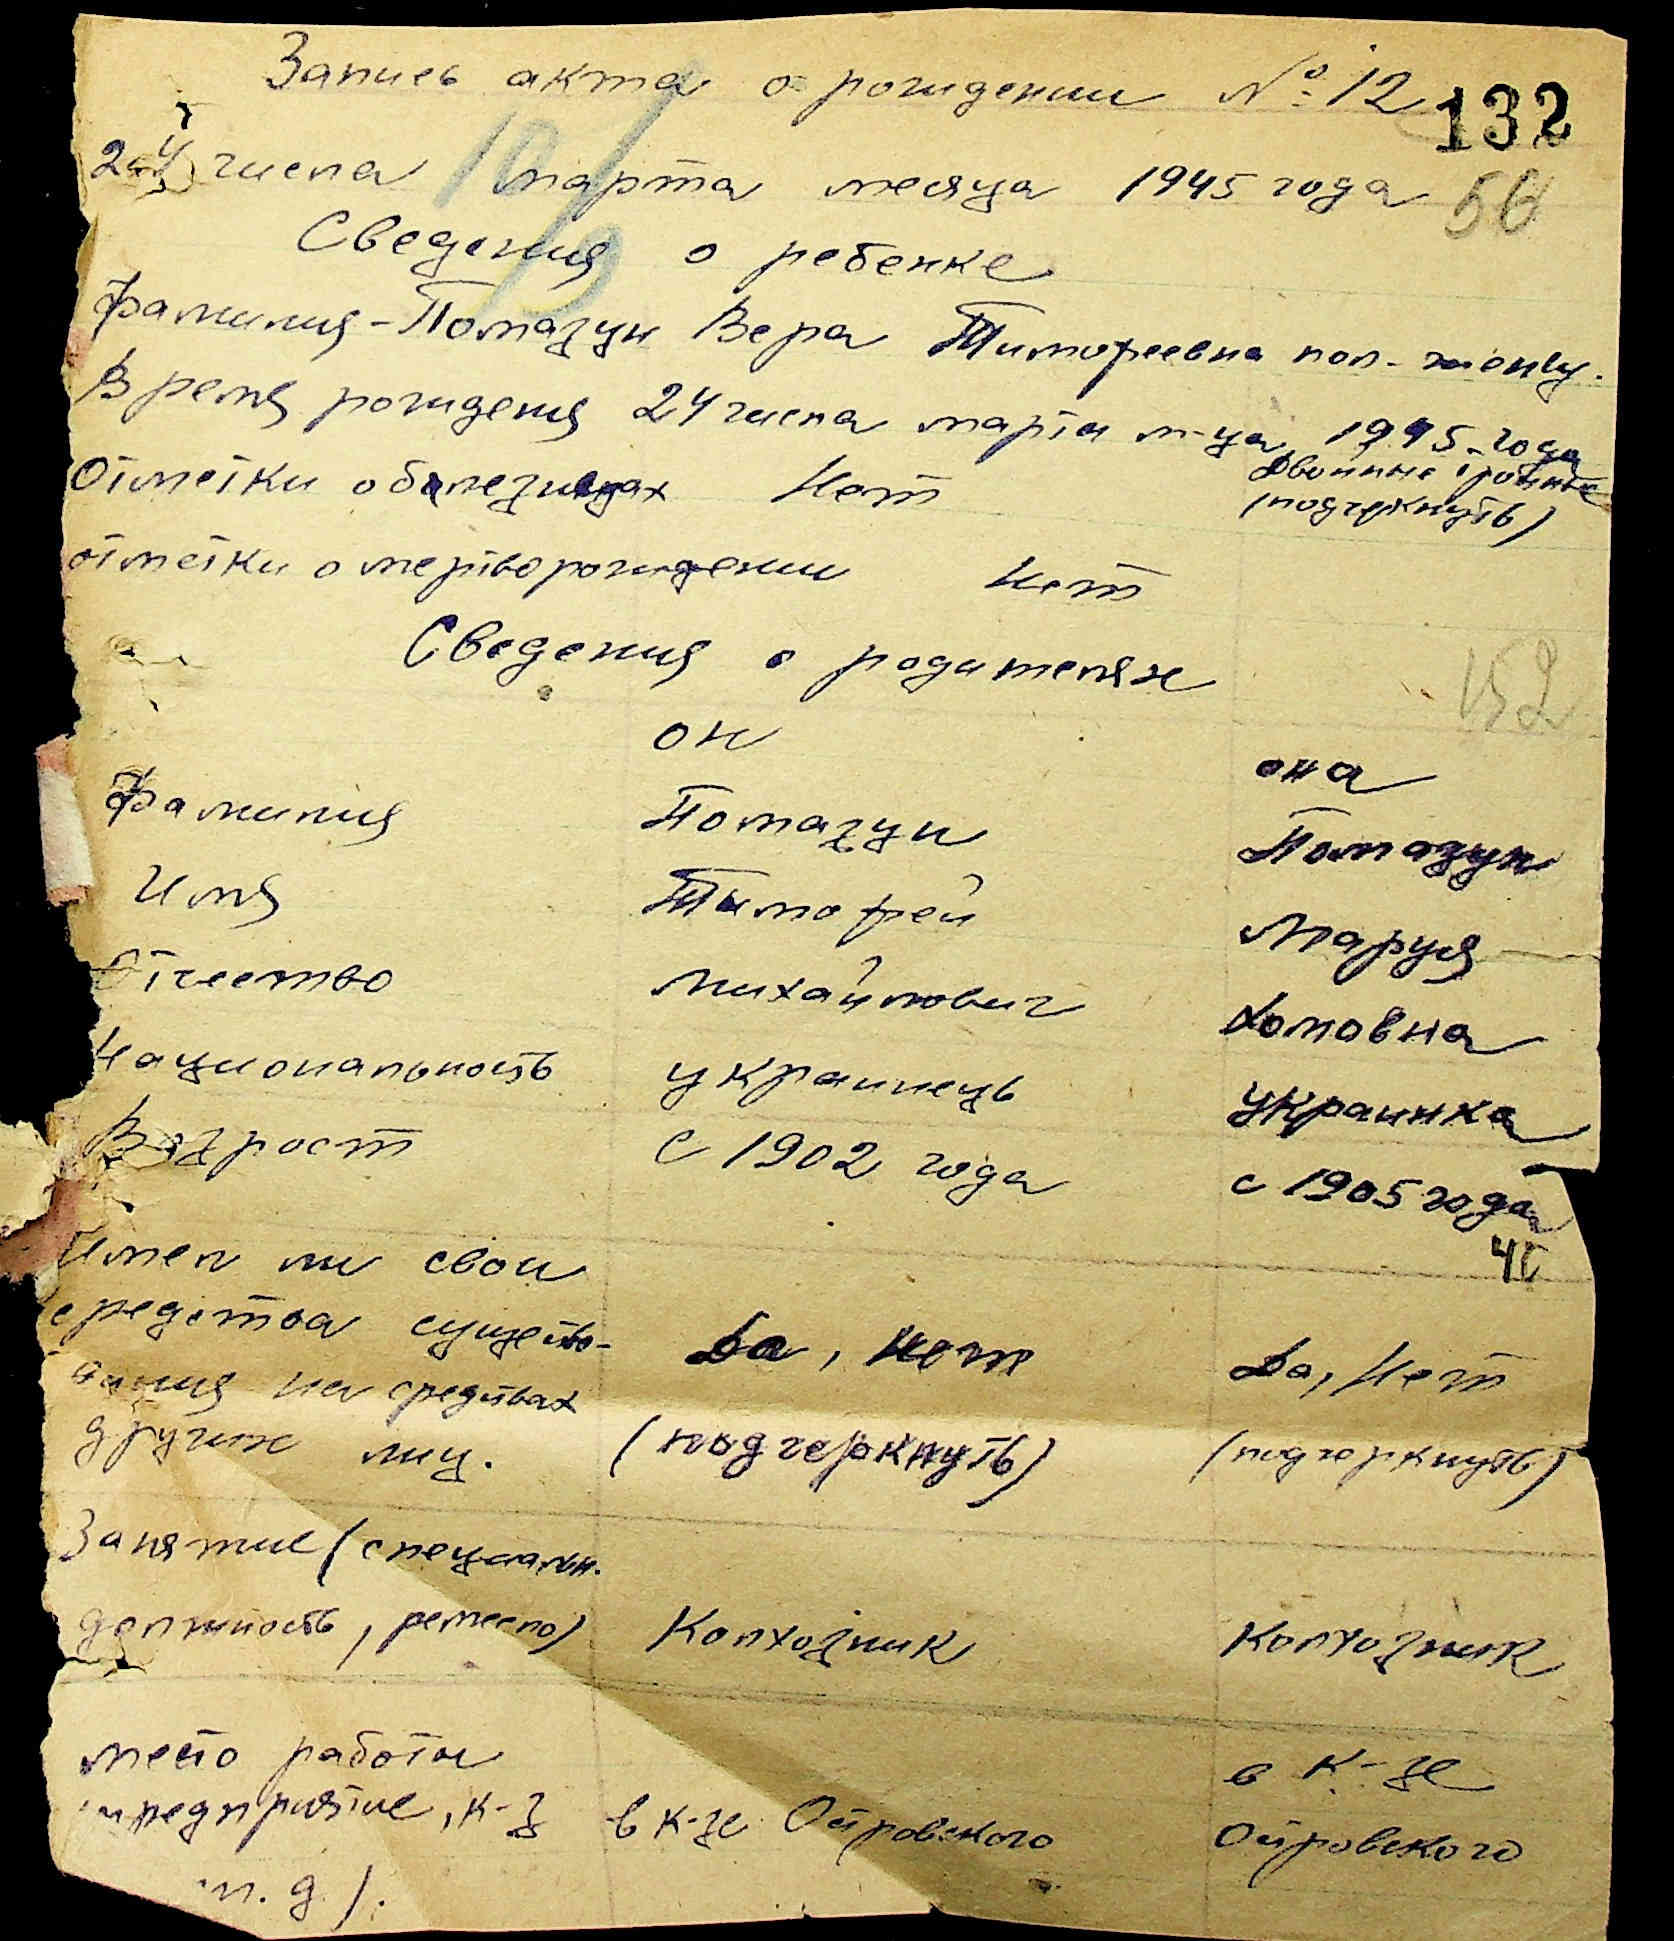 Запись акта о рождении № 12
132
24 числа марта месяца 1945 года
56
Сведения о ребенке
Фамилия - Помазун Вера Тимофеевна пол - женщ.
Время рождения 24 числа марта м-ца 1945 - года
Двоиние троиние
(подчеркнуть)
Отметки о болезнях Нет
отметки о мертворождении Нет
Сведения о родителях
152
он она
Фамилия Помазун Помазун
Имя Тимофей Маруя
Отчество Михайлович Хомовна
Национальность украинець украинка
Возраст С 1902 года с 1905 года
Имел ли свои
средства существо-
вания на средствах Да, Нет Да, Нет
других лиц. (подчеркнуть) (подчеркнуть)
Занятие (специальн.
должность, ремесло) Колхозник Колхозник
место работы
предприятие, к-з в к-зе Островского в к-зе Островского
т. д.).